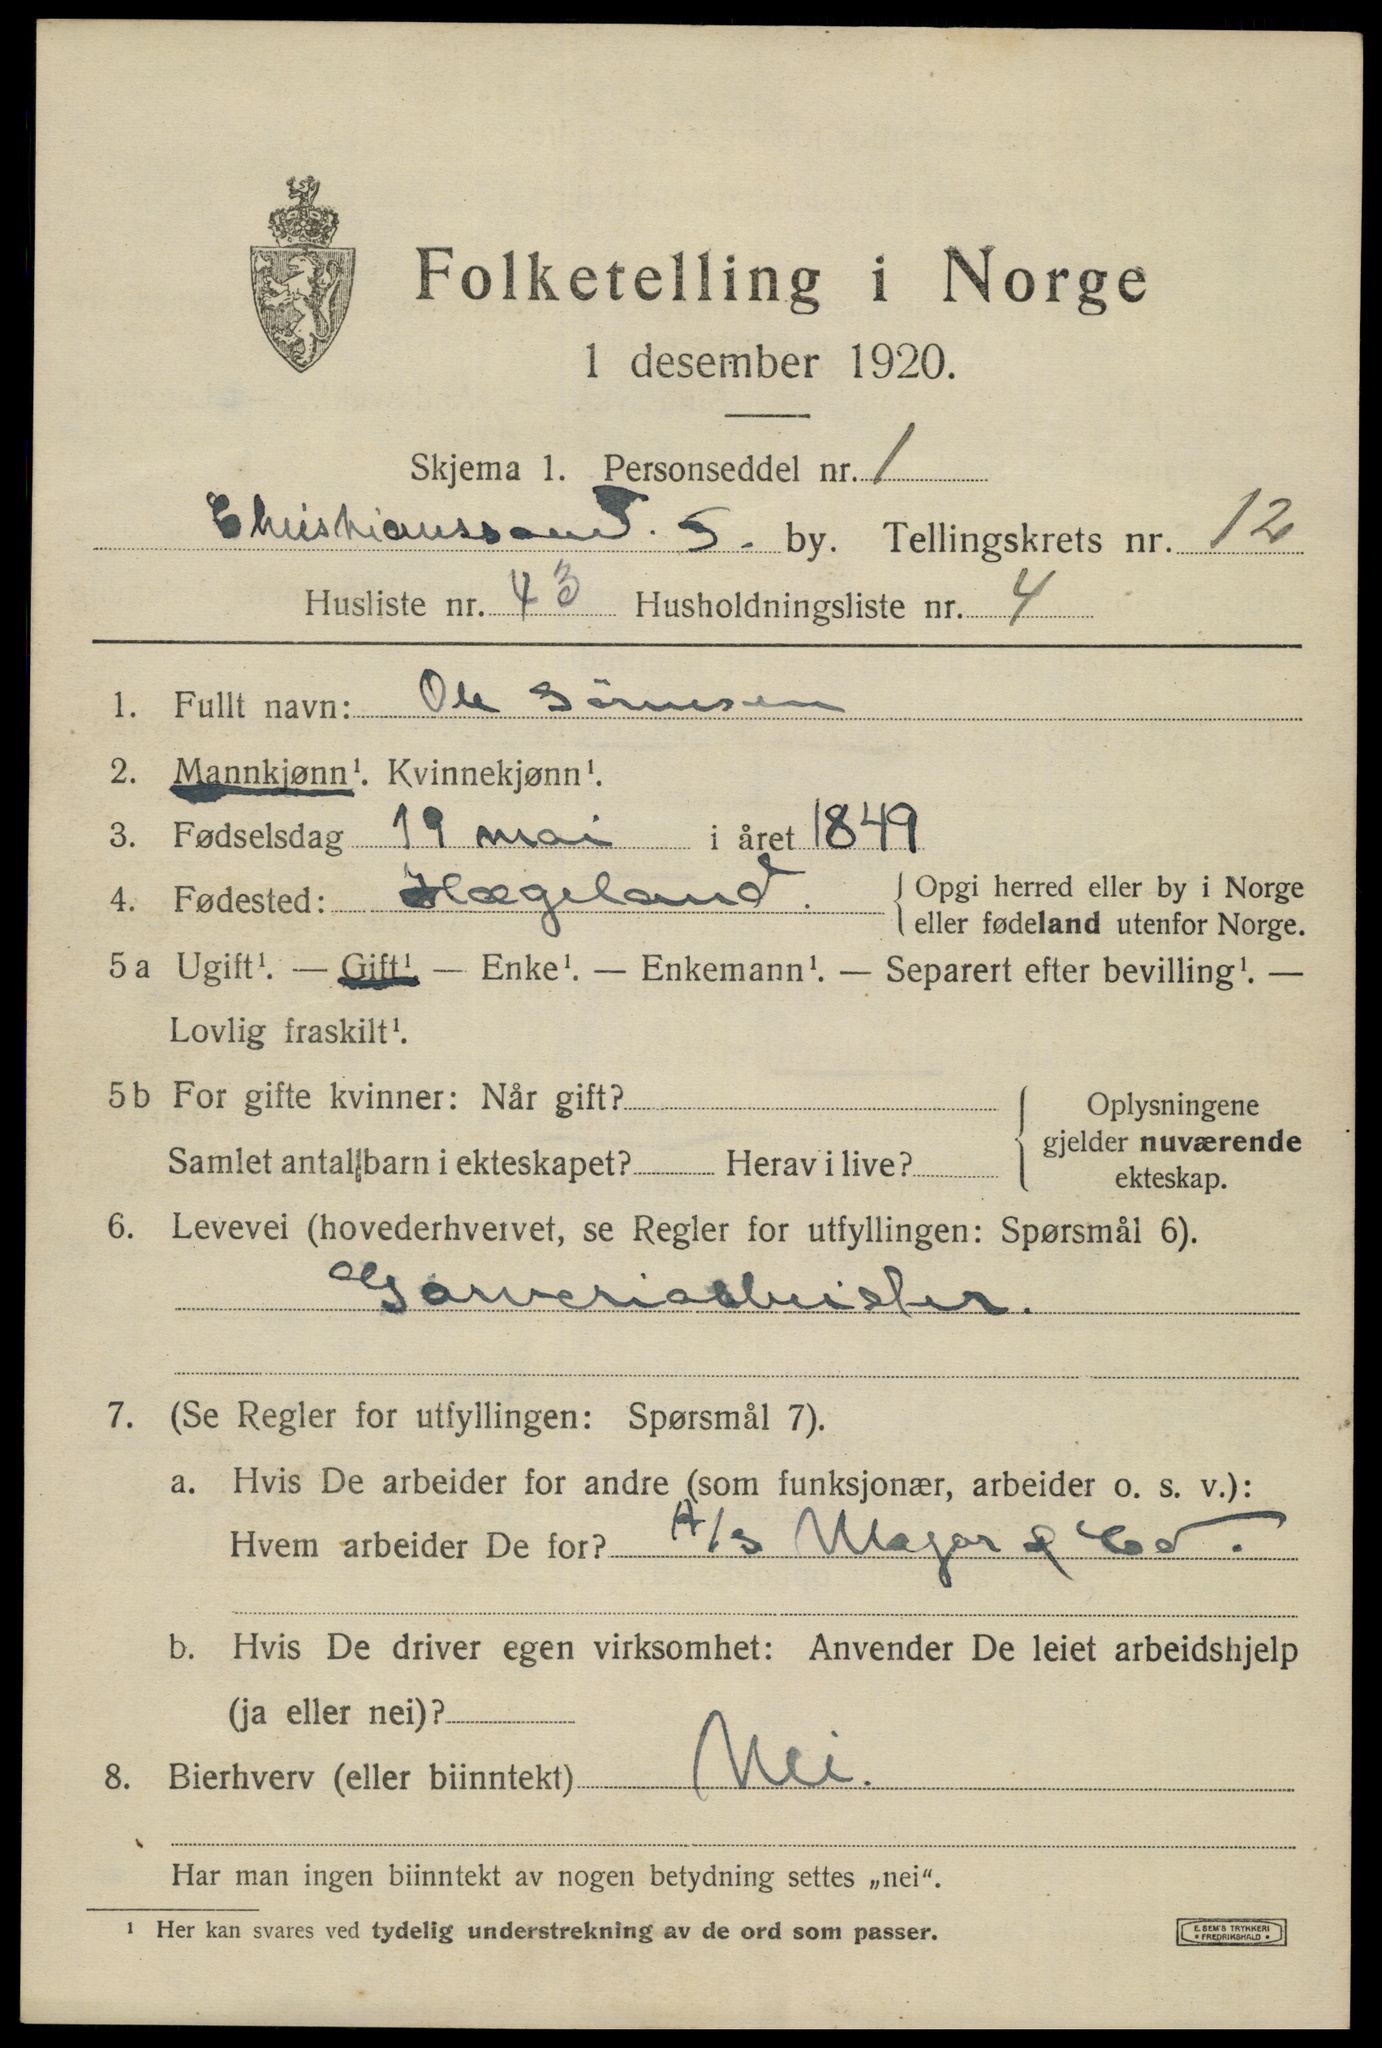 Folketelling i Norge
1 desember 1920.
Skjema 1. Personseddel nr. 1
Christianssand. S. by. Tellingskrets nr. 12
Husliste nr. 43 Husholdningsliste nr. 4
1. Fullt navn: Ole
2. Mannkjønn¹. Kvinnekjønn¹.
3. Fødselsdag 19 mai i året 1849
4. Fødested: Hægeland. { Opgi herred eller by i Norge
eller fødeland utenfor Norge.
5a Ugift¹. — Gift¹ — Enke¹. — Enkemann¹. — Separert efter bevilling¹. —
Lovlig fraskilt¹.
5b For gifte kvinner: Når gift?
Samlet antall barn i ekteskapet? Herav i live?
{ Oplysningene
gjelder nuværende
ekteskap.
6. Levevei (hovederhvervet, se Regler for utfyllingen: Spørsmål 6).
Garveriarbeider.
7. (Se Regler for utfyllingen: Spørsmål 7).
a. Hvis De arbeider for andre (som funksjonær, arbeider o. s. v.):
Hvem arbeider De for? A/s & Co.
b. Hvis De driver egen virksomhet: Anvender De leiet arbeidshjelp
(ja eller nei)?
8. Bierhverv (eller biinntekt) Nei.
Har man ingen biinntekt av nogen betydning settes „nei“.
¹ Her kan svares ved tydelig understrekning av de ord som passer.
E. SEM'S TRYKKERI
• FREDRIKSHALD •